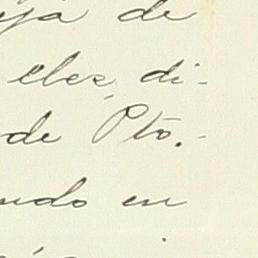 de
eles di-
de Pto.-
ndo en